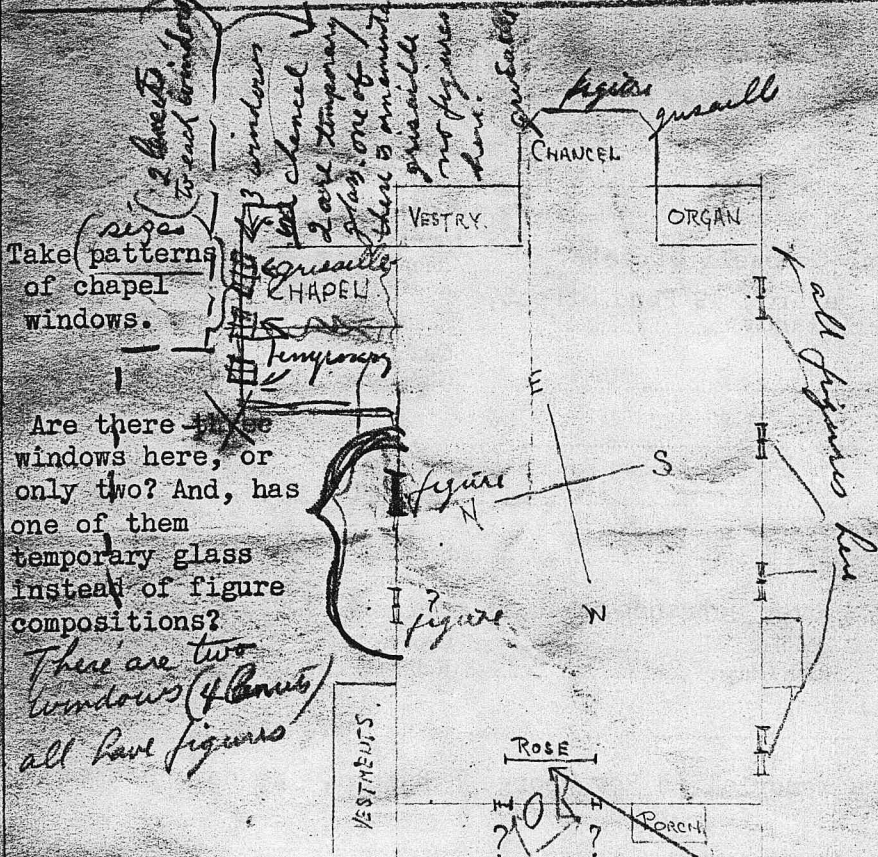 (2 lancets
to each window
3 windows
and chancel
2 are temporary
glass. one of
these is ornamental
grisaille
no figures
here.
grisaille
figure
grisaille
CHANCEL
VESTRY.
ORGAN
(sizes)
Take (patterns
of chapel
windows.
grisaille
CHAPEL
Temporary
all figures here
Are there three
windows here, or
only two? And, has
one of them
temporary glass
instead of figure
compositions?
There are two
windows (4 lancets)
all have figures
figure
?
figure
E
S
N
W
VESTMENTS.
ROSE
PORCH.
?
?